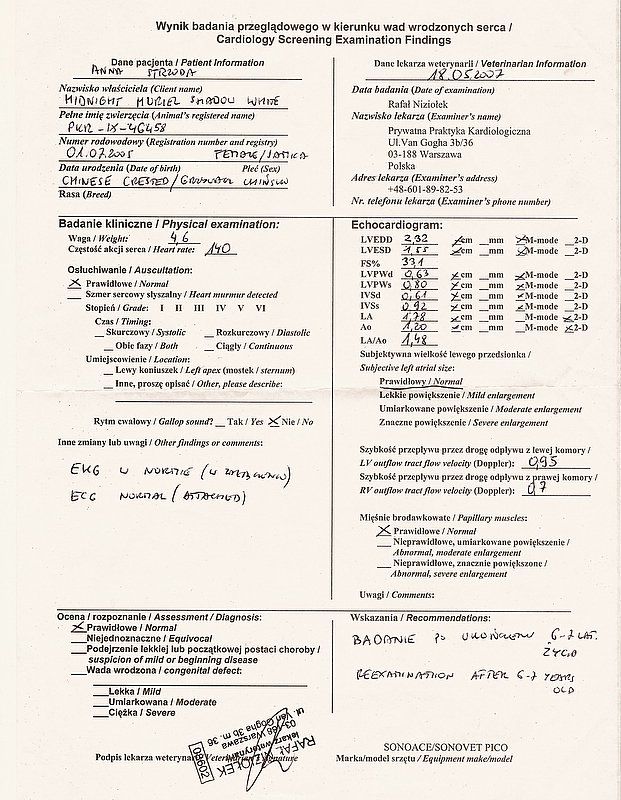 Wynik badania przeglądowego w kierunku wad wrodzonych serca /
Cardiology Screening Examination Findings
Dane pacjenta / Patient Information
ANNA STRZODA
Nazwisko właściciela (Client name)
MIDNIGHT MURIEL SHADOU WHITE
Pełne imię zwierzęcia (Animal's registered name)
PKR-IX-46458
Numer rodowodowy (Registration number and registry)
01.07.2005 FEMALE/SAMICA
Data urodzenia (Date of birth) Płeć (Sex)
CHINESE CRESTED/GRZYWACZ CHIŃSKI
Rasa (Breed)
Dane lekarza weterynarii / Veterinarian Information
18.05.2007
Data badania (Date of examination)
Rafał Niziołek
Nazwisko lekarza (Examiner's name)
Prywatna Praktyka Kardiologiczna
Ul.Van Gogha 3b/36
03-188 Warszawa
Polska
Adres lekarza (Examiner's address)
+48-601-89-82-53
Nr. telefonu lekarza (Examiner's phone number)
Badanie kliniczne / Physical examination:
Waga / Weight: 4,6
Częstość akcji serca / Heart rate: 140
Osłuchiwanie / Auscultation:
X Prawidłowe / Normal
__ Szmer sercowy słyszalny / Heart murmur detected
Stopień / Grade: I II III IV V VI
Czas / Timing:
__ Skurczowy / Systolic __ Rozkurczowy / Diastolic
__ Obie fazy / Both __ Ciągły / Continuous
Umiejscowienie / Location:
__ Lewy koniuszek / Left apex (mostek / sternum)
__ Inne, proszę opisać / Other, please describe:
Rytm cwałowy / Gallop sound? __ Tak / Yes X Nie / No
Inne zmiany lub uwagi / Other findings or comments:
EKG W NORMIE (W ZAŁĄCZENIU)
ECG NORMAL (ATTACHED)
Echocardiogram:
LVEDD 2,32 X cm __mm X M-mode __2-D
LVESD 1,55 X cm __mm X M-mode __2-D
FS% 33,1
LVPWd 0,63 X cm __mm X M-mode __2-D
LVPWs 0,80 X cm __mm X M-mode __2-D
IVSd 0,61 X cm __mm X M-mode __2-D
IVSs 0,92 X cm __mm X M-mode __2-D
LA 1,78 X cm __mm __M-mode X 2-D
Ao 1,20 X cm __mm __M-mode X 2-D
LA/Ao 1,48
Subjektywna wielkość lewego przedsionka /
Subjective left atrial size:
Prawidłowy / Normal
Lekkie powiększenie / Mild enlargement
Umiarkowane powiększenie / Moderate enlargement
Znaczne powiększenie / Severe enlargement
Szybkość przepływu przez drogę odpływu z lewej komory /
LV outflow tract flow velocity (Doppler): 0,95
Szybkość przepływu przez drogę odpływu z prawej komory /
RV outflow tract flow velocity (Doppler): 0,7
Mięśnie brodawkowate / Papillary muscles:
X Prawidłowe / Normal
__ Nieprawidłowe, umiarkowane powiększenie /
Abnormal, moderate enlargement
__ Nieprawidłowe, znacznie powiększone /
Abnormal, severe enlargement
Uwagi / Comments:
Ocena / rozpoznanie / Assessment / Diagnosis:
X Prawidłowe / Normal
__ Niejednoznaczne / Equivocal
__ Podejrzenie lekkiej lub początkowej postaci choroby /
suspicion of mild or beginning disease
__ Wada wrodzona / congenital defect:
__ Lekka / Mild
__ Umiarkowana / Moderate
__ Ciężka / Severe
Wskazania / Recommendations:
BADANIE PO UKOŃCZENIU 6-7 LAT.
ŻYCIA
REEXAMINATION AFTER 6-7 YEARS
OLD
RAFAŁ NIZIOŁEK
lekarz weterynarii
03-188 Warszawa
ul. Van Gogha 3b m. 36
Podpis lekarza weterynarii / Veterinarian Signature
SONOACE/SONOVET PICO
Marka/model srzętu / Equipment make/model